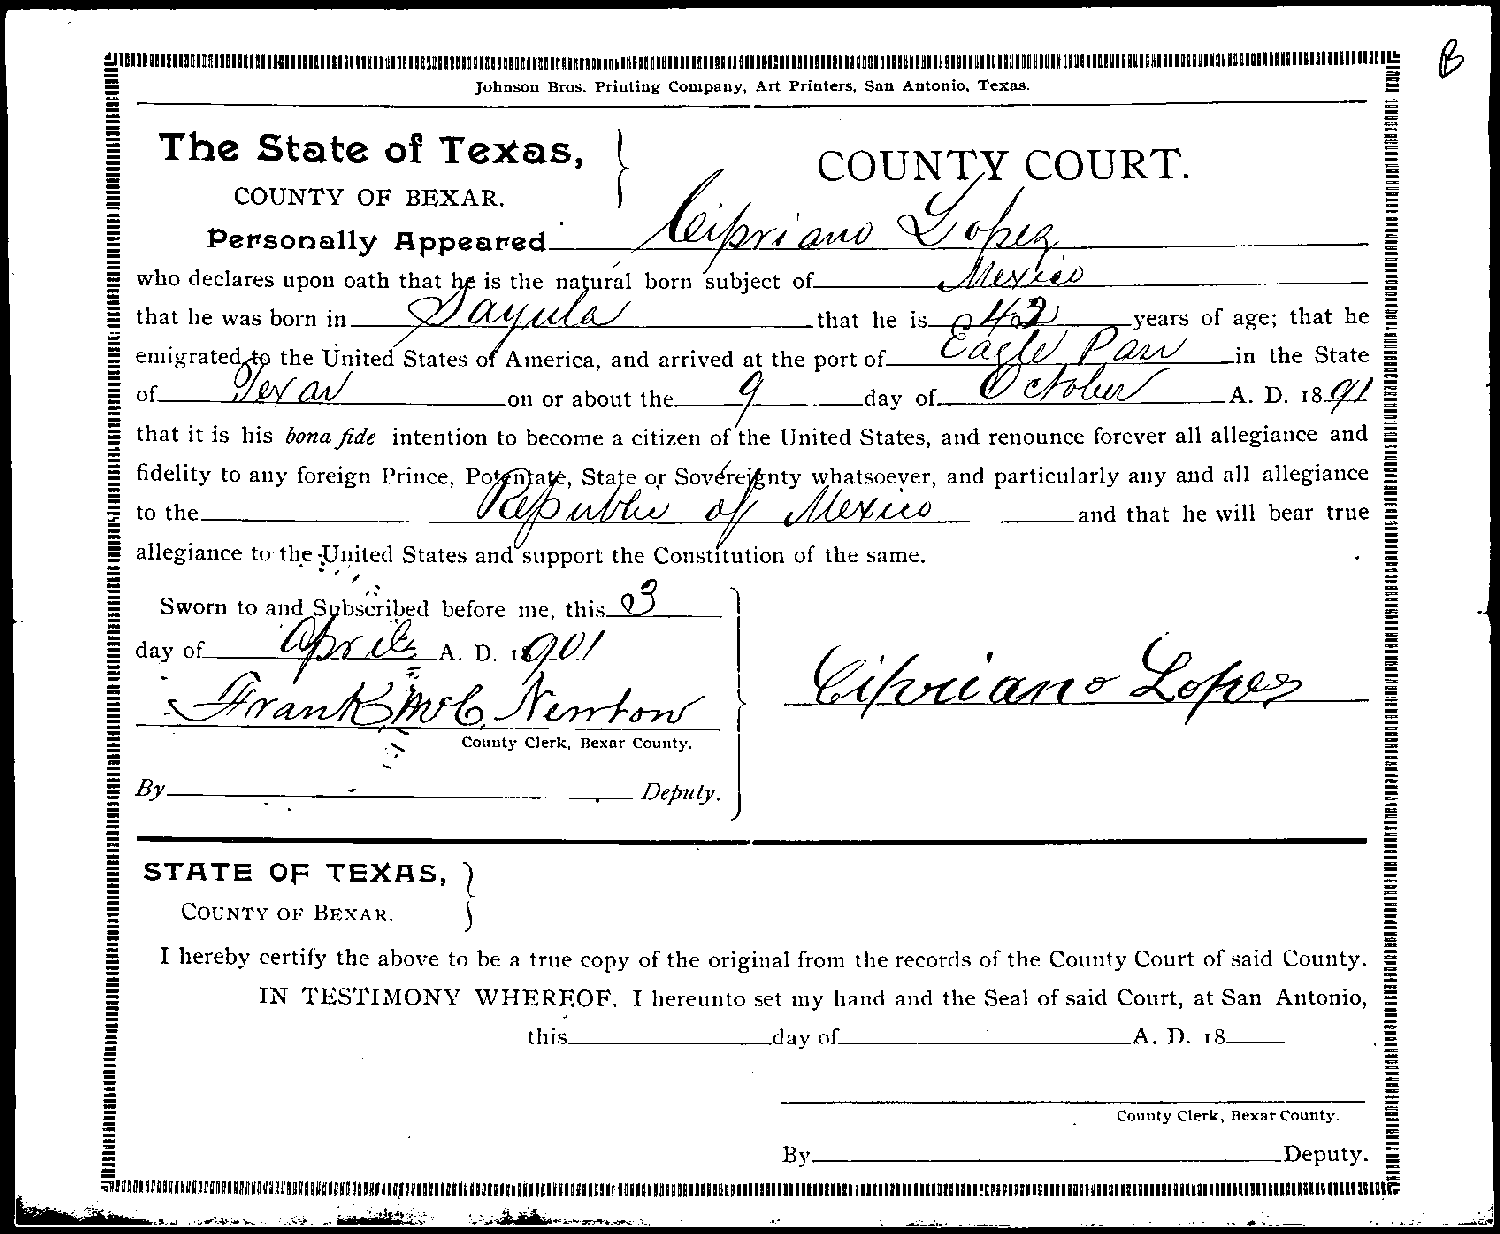 B
Johnson Bros. Printing Company, Art Printers, San Antonio, Texas.
The State of Texas,
COUNTY OF BEXAR.
COUNTY COURT.
Personally Appeared Cipriano Lopez
who declares upon oath that he is the natural born subject of Mexico
that he was born in Sayula that he is 42 years of age; that he
emigrated to the United States of America, and arrived at the port of Eagle Pass in the State
of Texas on or about the 9 day of October A. D. 1891
that it is his bona fide intention to become a citizen of the United States, and renounce forever all allegiance and
fidelity to any foreign Prince, Potentate, State or Sovereignty whatsoever, and particularly any and all allegiance
to the Republic of Mexico and that he will bear true
allegiance to the United States and support the Constitution of the same.
Sworn to and Subscribed before me, this 3
day of April A. D. 1901
Cipriano Lopez
Frank McC Newton
County Clerk, Bexar County.
By Deputy.
STATE OF TEXAS,
COUNTY OF BEXAR.
I hereby certify the above to be a true copy of the original from the records of the County Court of said County.
IN TESTIMONY WHEREOF, I hereunto set my hand and the Seal of said Court, at San Antonio,
this day of A. D. 18
County Clerk, Bexar County.
By Deputy.